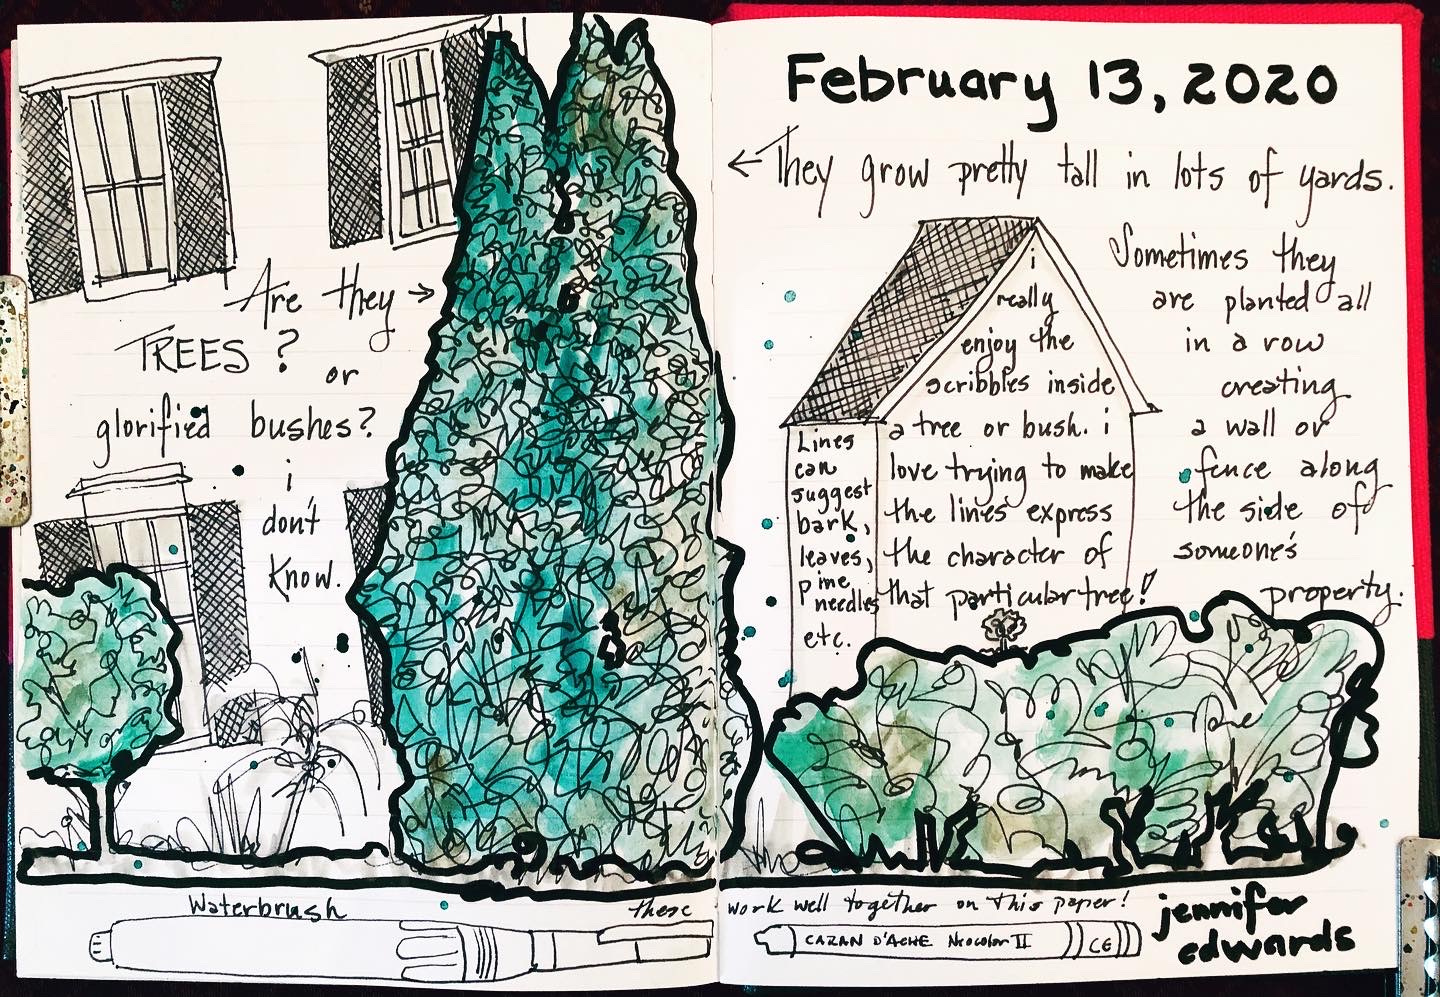 Are they →
TREES? or
glorified bushes?
i
don't
know.
Waterbrush
these
February 13, 2020
← They grow pretty tall in lots of yards.
Sometimes they
are planted all
in a row
creating
a wall or
fence along
the side of
someone's
property.
i
really
enjoy the
scribbles inside
a tree or bush. i
love trying to make
the lines express
the character of
that particular tree!
Lines
can
suggest
bark,
leaves,
pine
needles
etc.
work well together on this paper!
CAZAN D'ACHE Neocolor II CE
jennifer
edwards